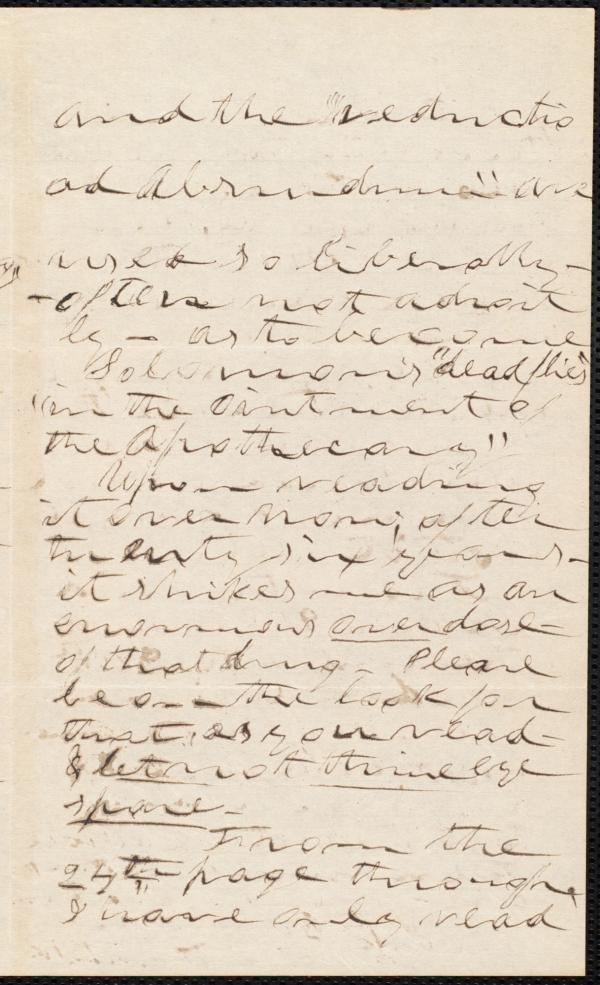 and the "reductio
ad Absurdum" are
used so liberally -
- often not adroit
ly - as to become
Solomon's "dead flies
"in the Ointment of
the Apothecary"
Upon reading
it over now, after
twenty six years -
it strikes me as an
enormous overdose
of that drug - Please
be on the look for
that, as you read -
& let not thine eye
spare -
From the
24th page through
I have only read